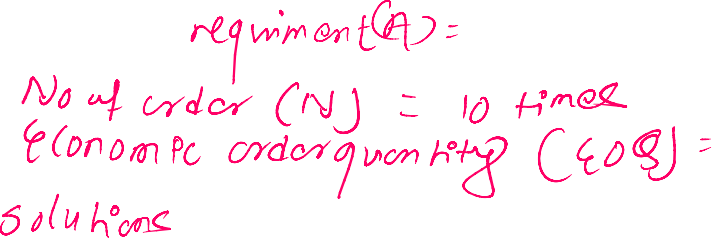 requiment(A) =
No of order (N) = 10 times
Economic order quantity (EOQ) =
solutions